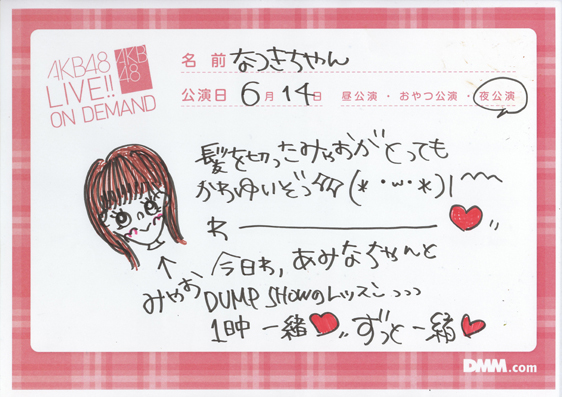 AKB48
LIVE!!
ON DEMAND
AKB
48
名前 なつきちゃん
公演日 6月14日 昼公演・おやつ公演・夜公演
髪を切ったみゃおがとっても
かわゆいぞっ (*・ω・*)
わ
今日わ、あみなちゃんと
DUMP SHOWのレッスンっっっ
1日中一緒 ずっと一緒
みゃお
DMM.com